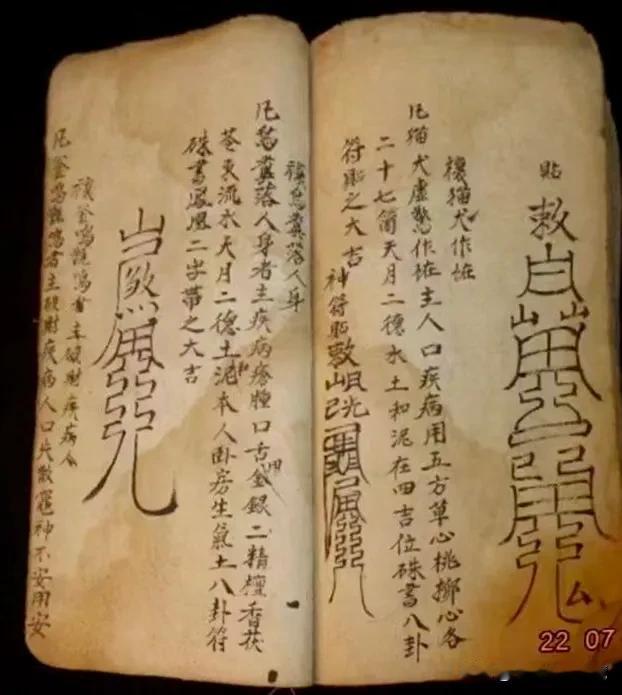 貼
敕
禳猫犬作恠
凡猫犬虛驚作恠主人口疾病用五方草心桃柳心各
二十七箇天月二德水土和泥在四吉位硃書八卦
符貼之大吉
神符貼敕
禳鳥糞落人身
凡鳥糞落人身者主疾病瘡腫口舌用金銀二精檀香茯
苓東流水天月二德土和泥本人卧房生氣土八卦符
硃書鳳凰二字帶之大吉
禳釜鳴甑鳴者主破財疾病人
凡釜鳴甑鳴者主破財疾病人口失散竈神不安用安
22 07